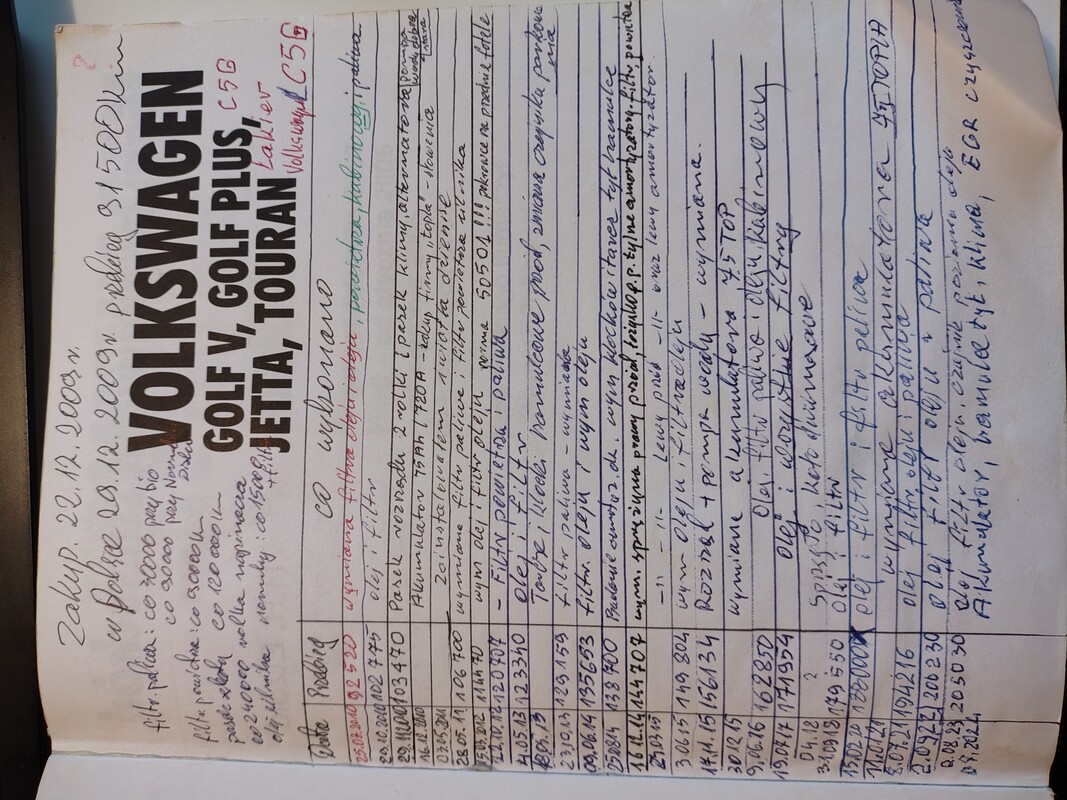 Zakup. 22.12.2009r.
w Polsce 29.12.2009r. przebieg 91500km ?
VOLKSWAGEN
GOLF V, GOLF PLUS,
JETTA, TOURAN
C5G
Lakier
Volkswagen C5G
filtr. paliwa: co 30000 przy bio
co 90000 przy Norm
filtr powietrza: co 90000k
pasek zębaty co 120 000k
co 240000 rolka napinacza
olej silnika normy: co 15000k
+ filtr
Data Przebieg co wykonano
25.07.2010 92 520 wymiana filtra oleju i oleju, powietrza, kabinowy i paliwa
29.10.2010 102 775 olej i filtr
29.11.2010 103 470 Pasek rozrządu 2 rolki i pasek klimy, alternatora pompa wody dobra stara
16.12.2010 Akumulator 75Ah / 720A - zakup firmy "topla" - Słowenia
03.05.2011 zainstalowałem światła dzienne
28.05.11 106 700 wymiana filtr paliwa i filtr powietrza silnika
2012 114470 wym olej i filtr oleju norma 50501!!! pokrowce na przednie fotele
22.10.12 120 707 - Filtr powietrza i paliwa
4.05.13 123340 olej i filtr
Tarcze i klocki hamulcowe przód, zmiana czujnika parkowania
23.10.13 129 159 filtr paliwa - wymiana
09.06.14 135693 filtr. oleju i wym oleju
25.08.14 138 700 wym klocków i tarcz tył hamulce
16.12.14 144 707 wym. sprężyna prawy przód, łożysko p. p. tylne amortyzatory, filtr. powietrza
-11- -11- lewy przód -11- oraz lewy amortyzator.
3.06.15 149 804 wym oleju i filtra oleju
17.11.15 156134 Rozrząd + pompa wody - wymiana.
30.12.15 wymiana akumulatora 75 TOP
9.06.16 162850 Olej filtr paliwa i oleju, kabinowy
19.07.17 171954 olej i wszystkie filtry
04.18 ? Sprzęgło koło dwumasowe
3.10.18 179 550 Olej i filtr
15.02.20 188000 olej i filtr i filtr paliwa
11.01.21 wymiana akumulatora 77 TOPLA
8.07.21 194216 olej filtr oleju i paliwa
2.09.22 200230 olej filtr oleju i paliwa
2.08.23 205030 Olej filtr oleju. czujnik poziomu oleju
07.2024 Akumulator, hamulce tył, klima, EGR czyszczenie